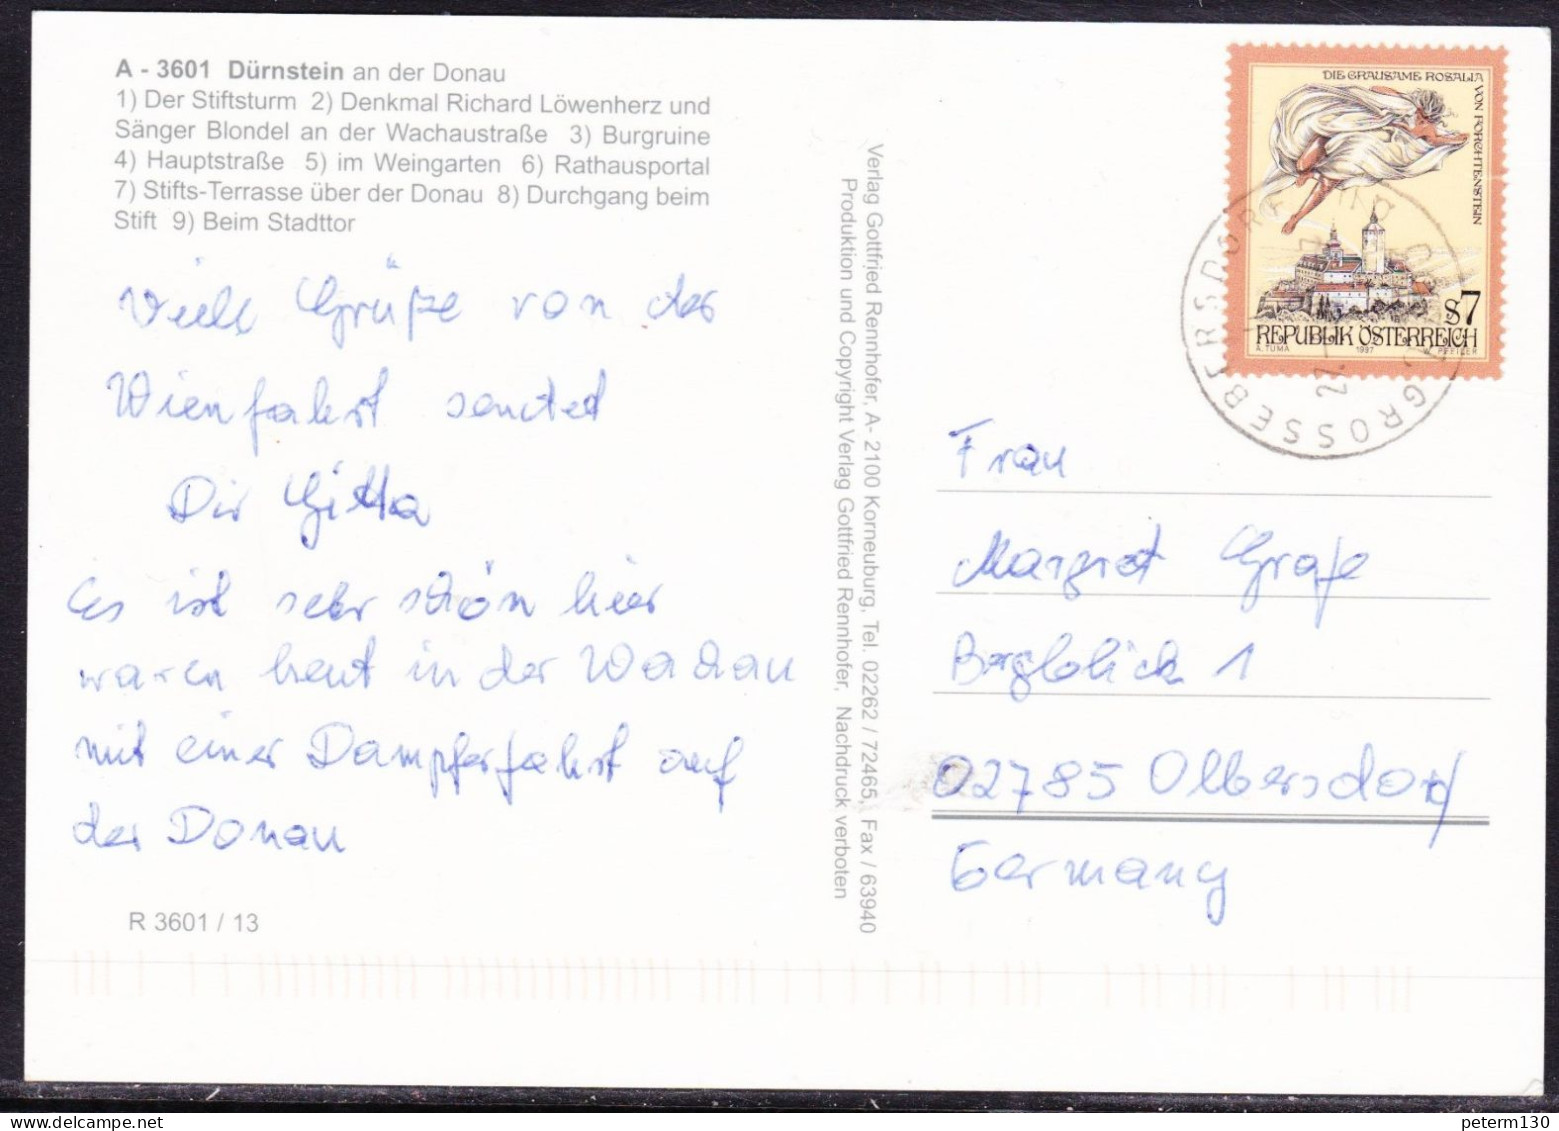 A - 3601 Dürnstein an der Donau
1) Der Stiftsturm 2) Denkmal Richard Löwenherz und
Sänger Blondel an der Wachaustraße 3) Burgruine
4) Hauptstraße 5) im Weingarten 6) Rathausportal
7) Stifts-Terrasse über der Donau 8) Durchgang beim
Stift 9) Beim Stadttor
Viele Grüße von der
Wienfahrt sendet
Dir Gitta
Es ist sehr schön hier
waren heut in der Wachau
mit einer Dampferfahrt auf
der Donau
R 3601 / 13
Verlag Gottfried Rennhofer, A- 2100 Korneuburg, Tel. 02262 / 72465, Fax / 63940
Produktion und Copyright Verlag Gottfried Rennhofer, Nachdruck verboten
DIE GRAUSAME ROSALIA
VON FORCHTENSTEIN
S7
REPUBLIK ÖSTERREICH
A. TUMA 1997 PFEILER
GROSSEBERSDORF
Frau
Margrot Grafe
Bergblick 1
02785 Olbersdorf
Germany
peterm130